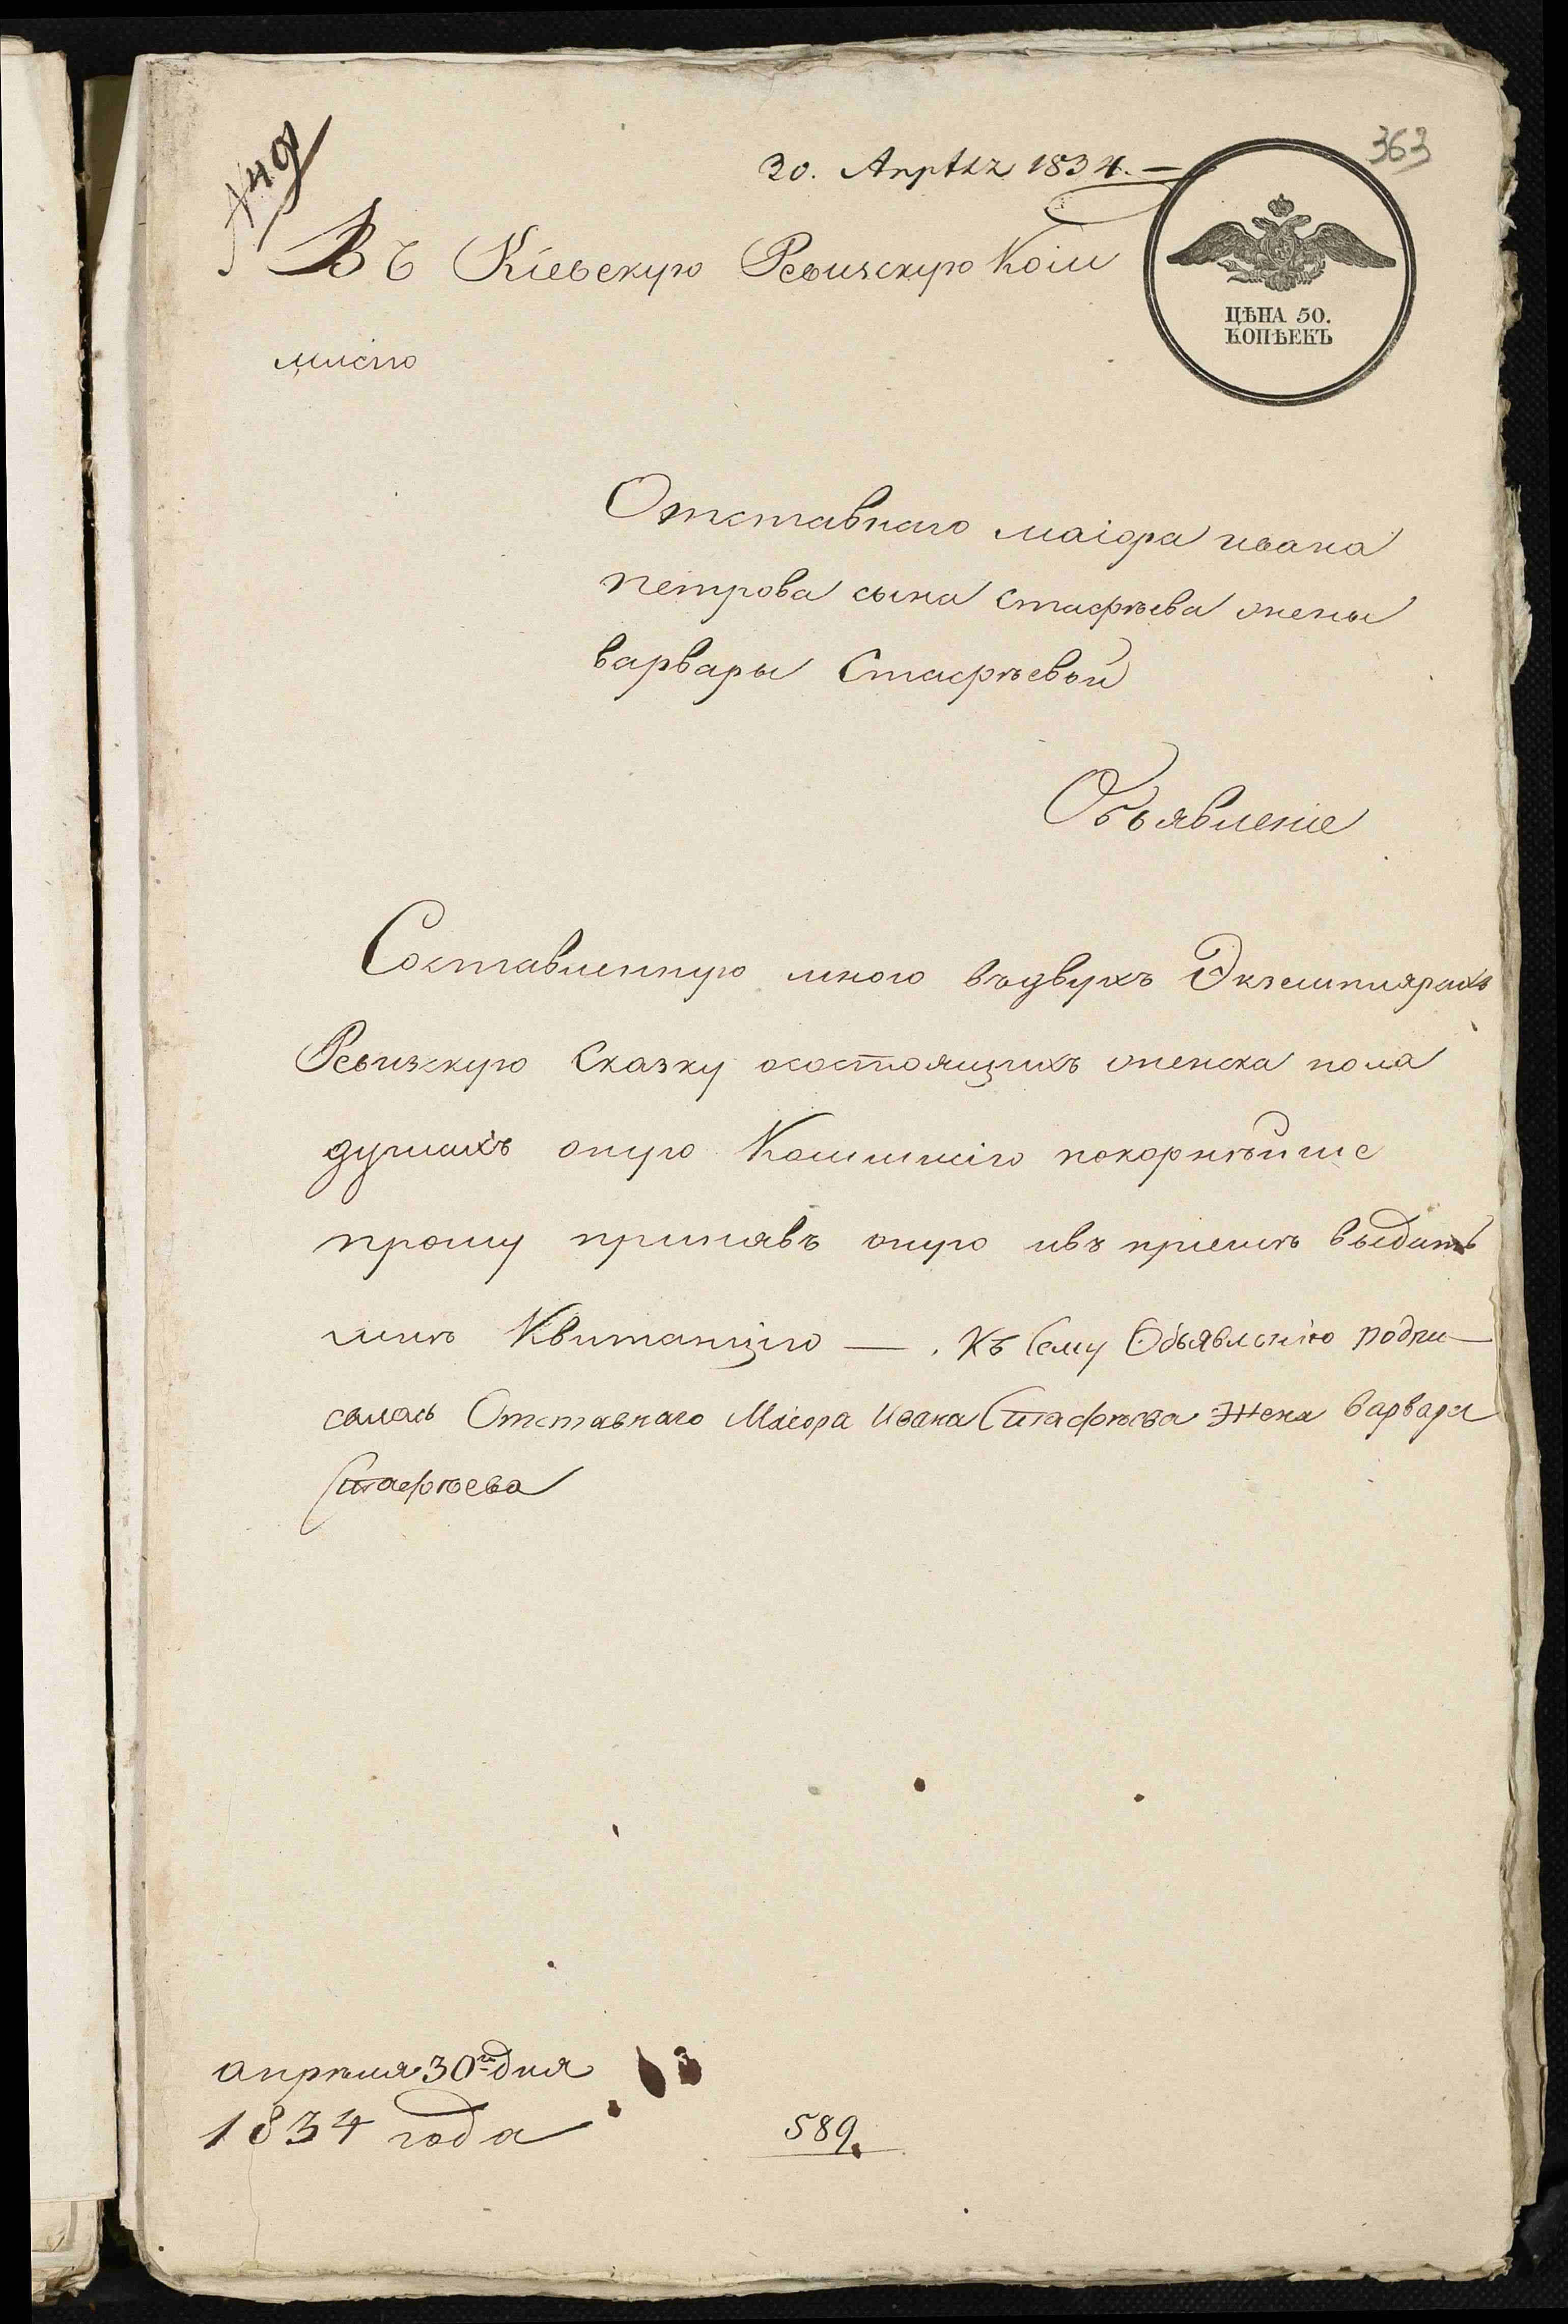 149
30. Апрѣля 1834. —
363
Въ Кіевскую Ревизскую Ком
мисію
ЦѢНА 50.
КОПѢЕКЪ
Отставнаго маіора ивана
петрова сына Стафѣева жены
варвары Стафѣевой
Объявленіе
Составленную мною въдвухъ Экземплярахъ
Ревизскую Сказку осостоящихъ женска пола
душахъ оную Коммисію покорнѣйше
прошу принявъ оную ивъ пріемѣ выдать
мнѣ Квитанцію — . Къ Сему Объявленію подпи—
салась Отставнаго Маіора Ивана Стафѣева Жена Варвара
Стафѣева
апрѣля 30го дня
1834 года
589.